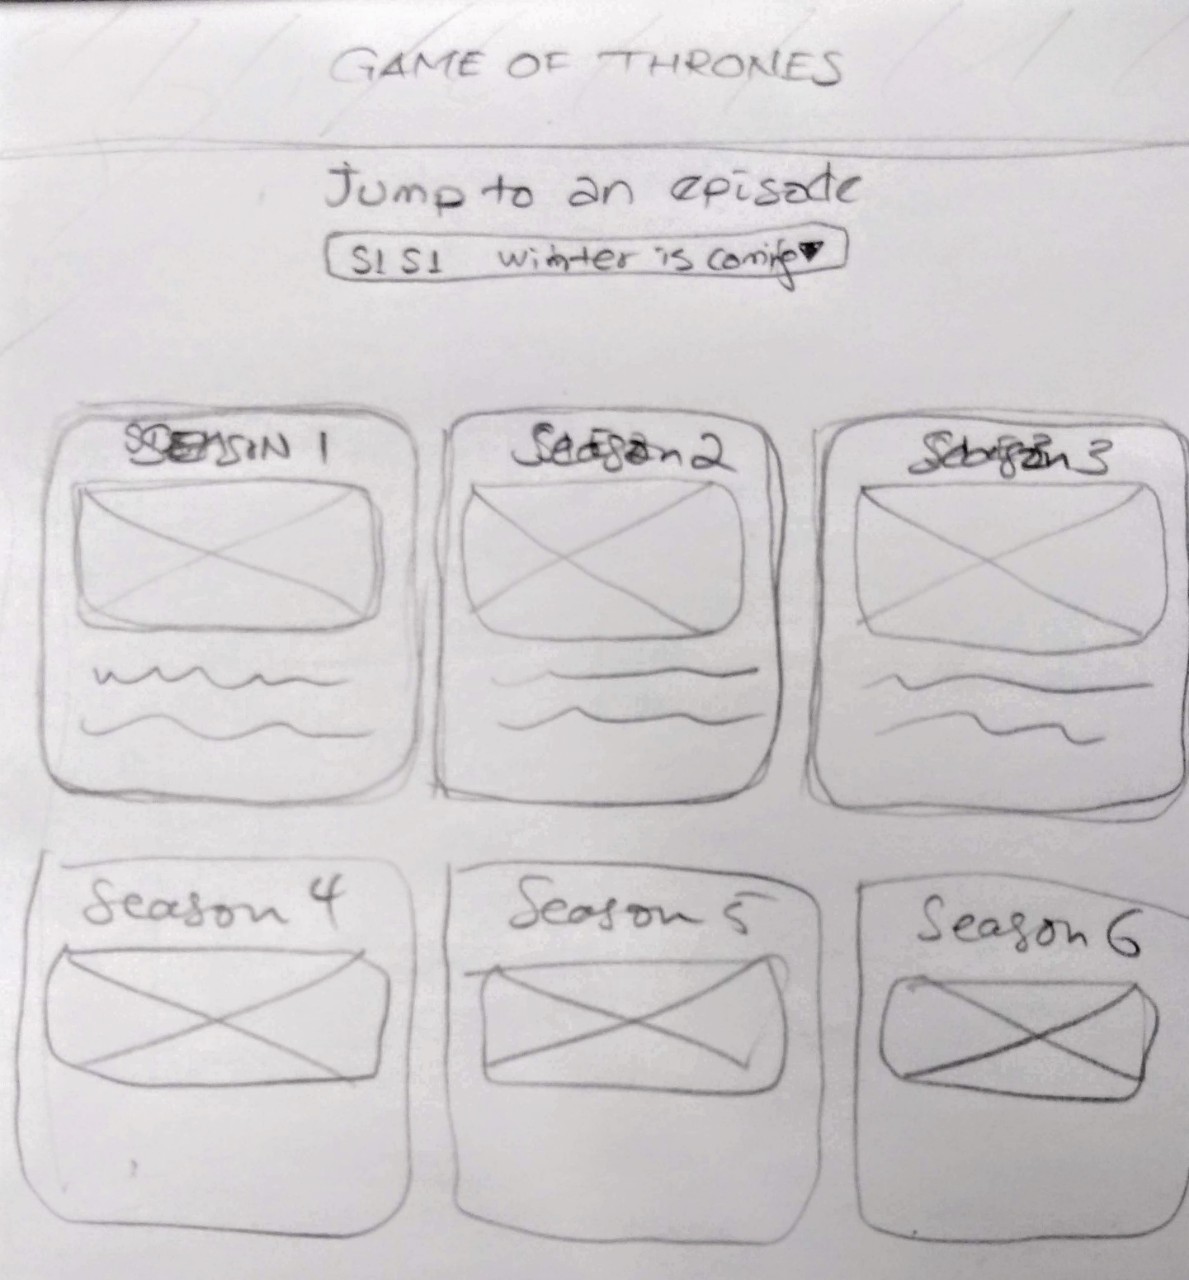 GAME OF THRONES
Jump to an episode
S1 S1 winter is coming
SEASON 1
Season 2
Season 3
Season 4
Season 5
Season 6